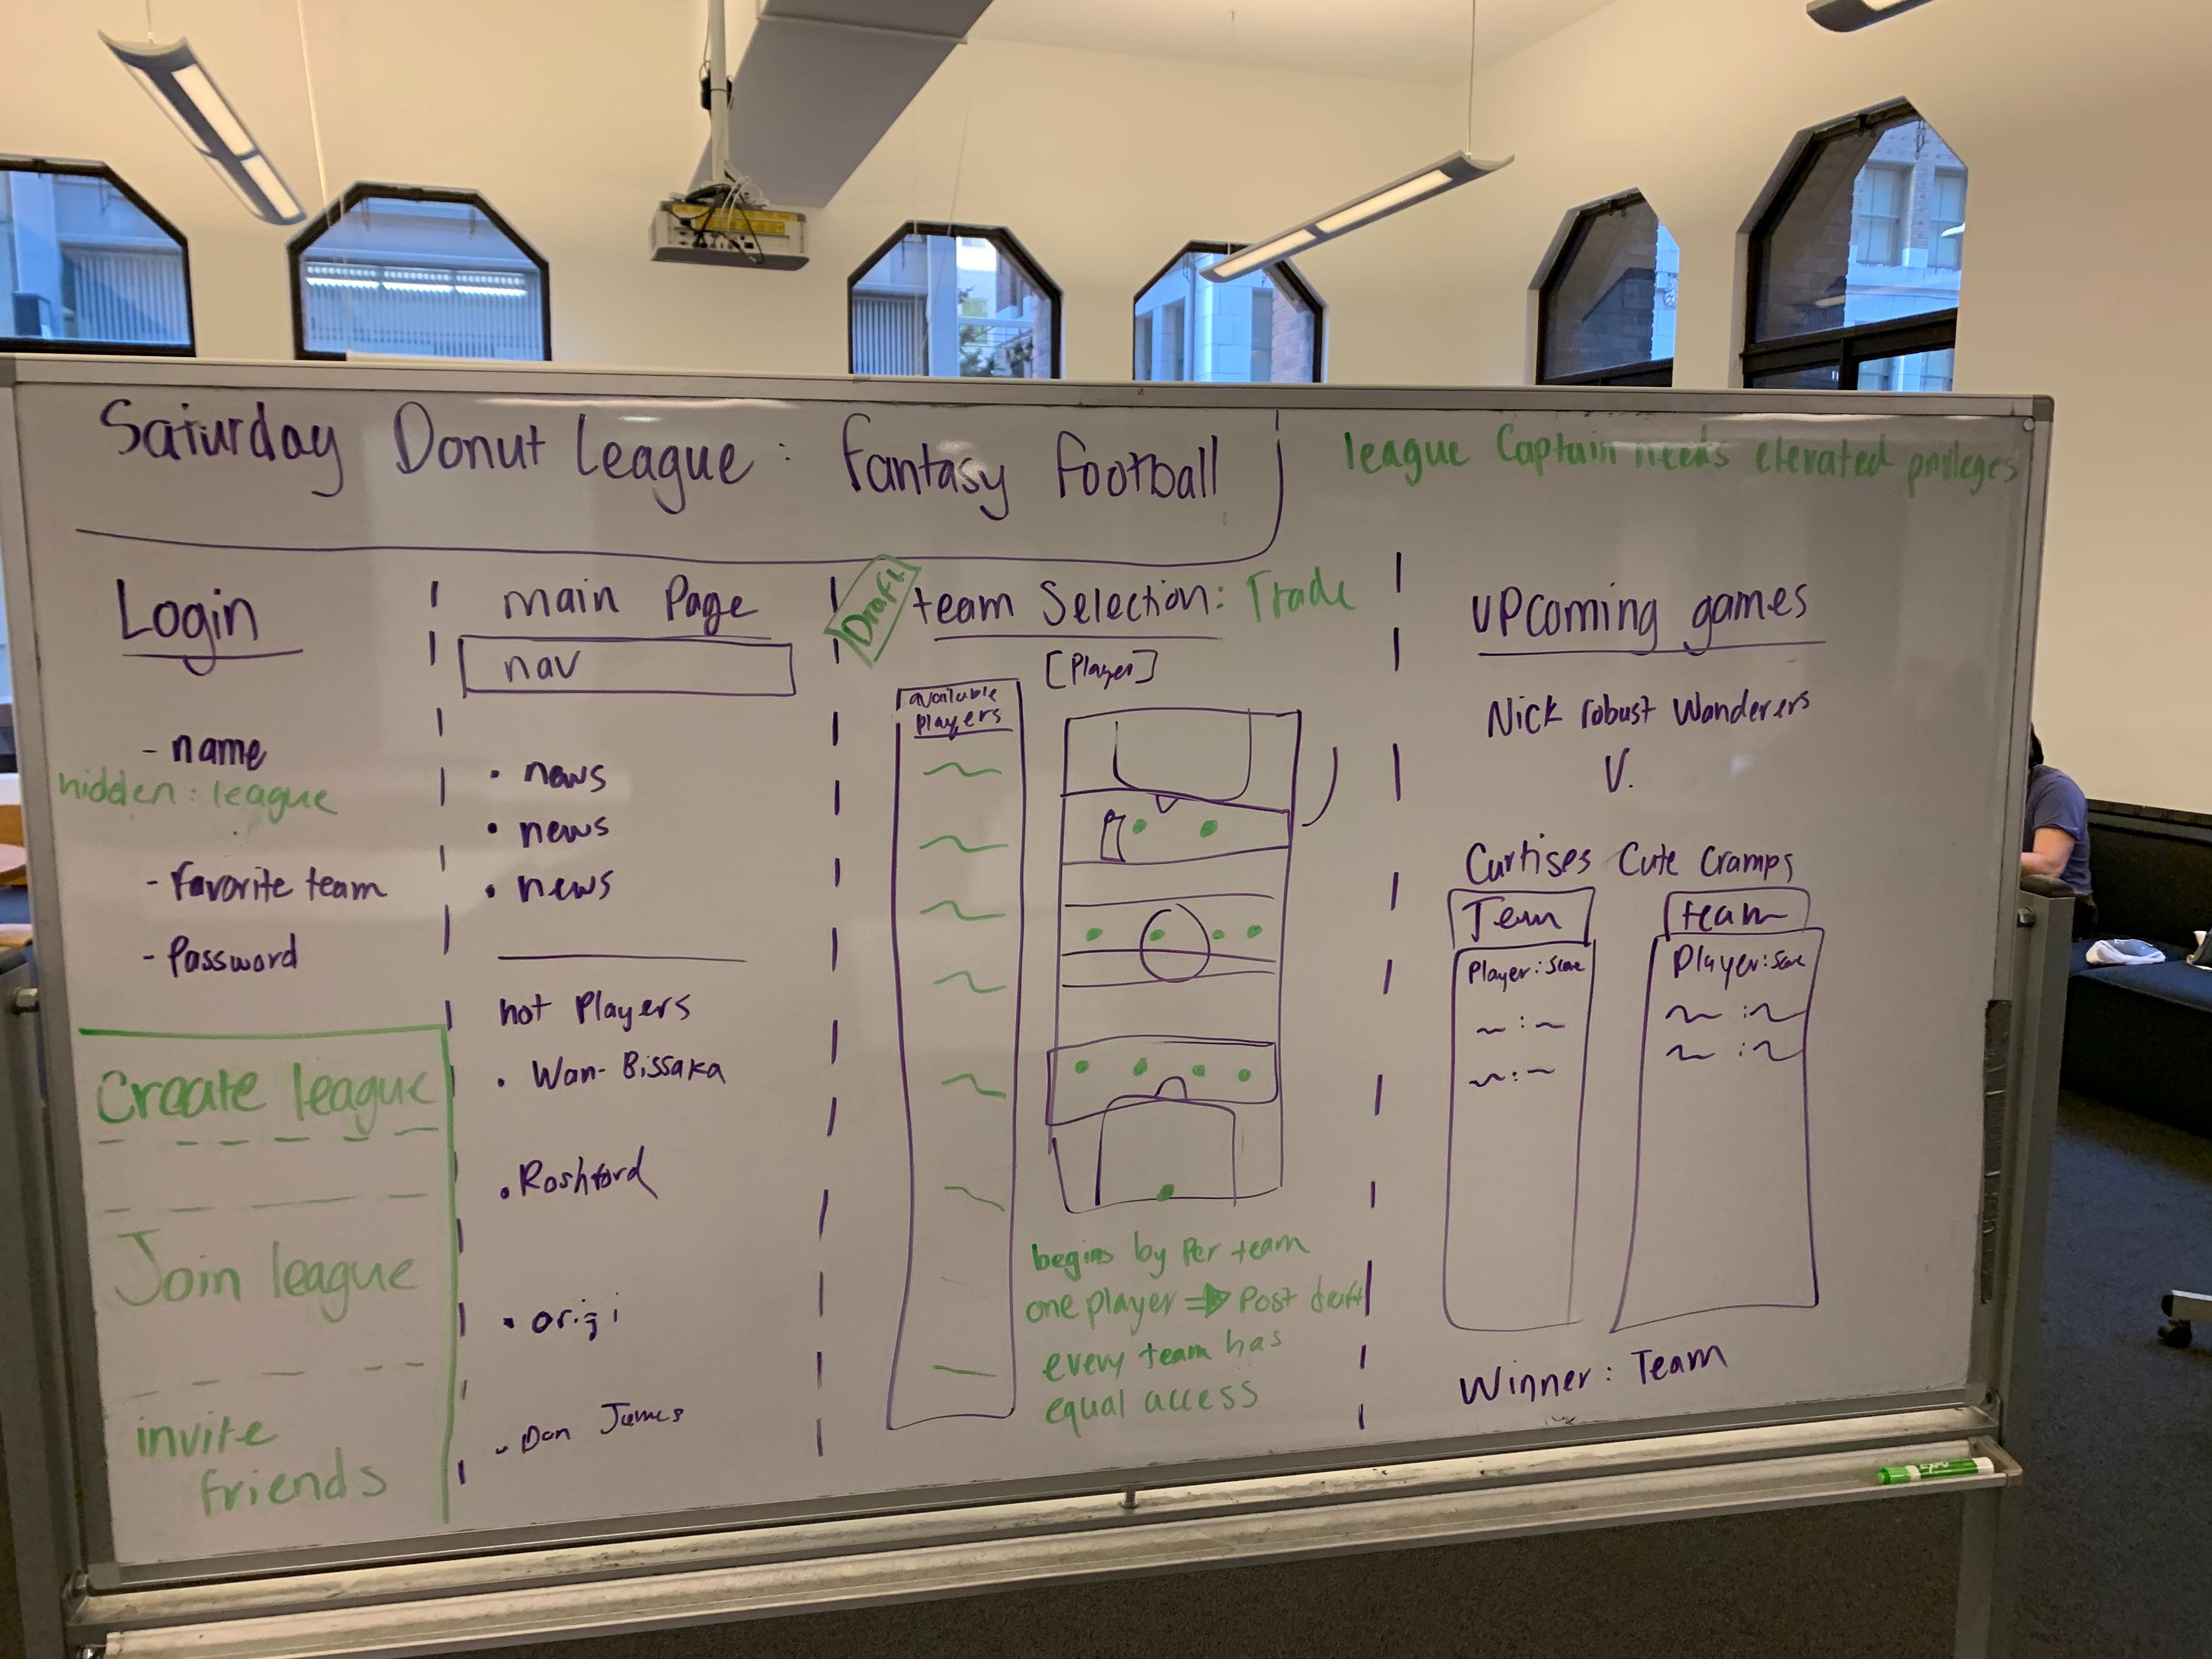 Saturday Donut League : Fantasy Football
league Captain needs elevated privileges
Login
- name
hidden : league
- Favorite team
- Password
Create league
Join league
invite
friends
main Page
nav
• news
• news
• news
hot Players
• Wan-Bissaka
• Rashford
• origi
• Dan James
Draft
team Selection: Trade
[Player]
available
players
begins by Per team
one player ⇒ Post draft
every team has
equal access
upcoming games
Nick robust Wanderers
V.
Curtises Cute Cramps
Team
Player : Score
team
Player : Score
Winner : Team